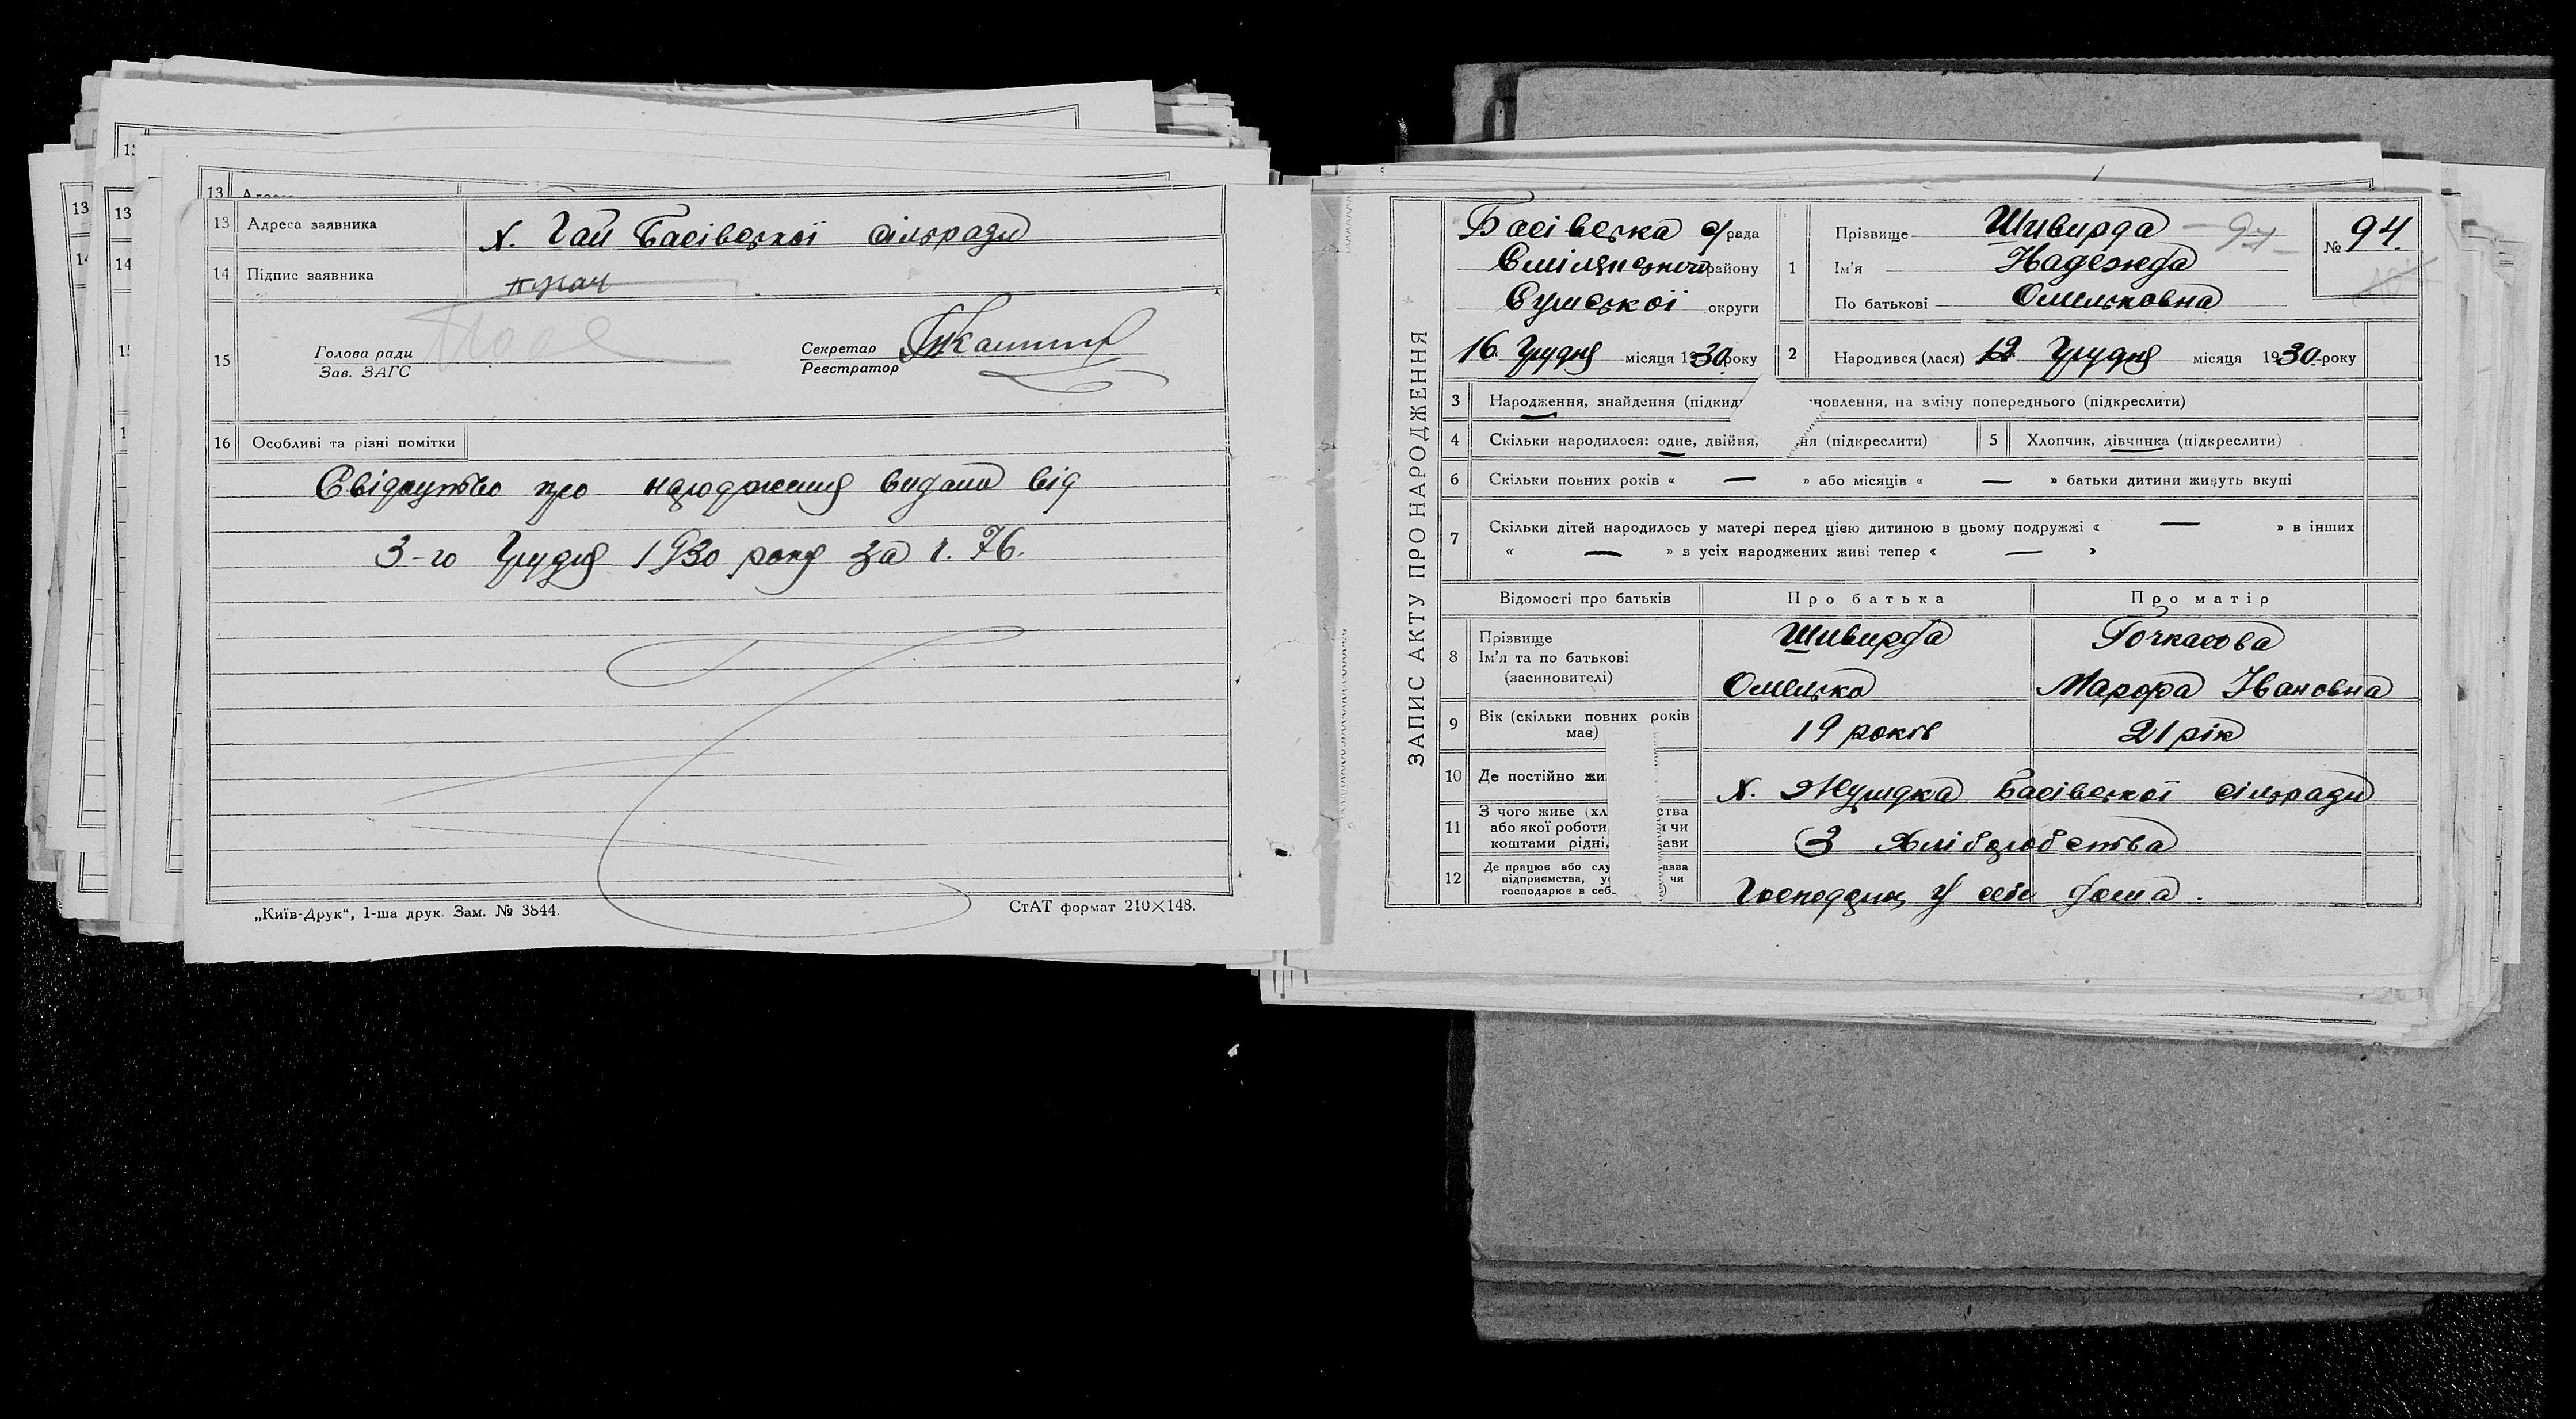 13 Адреса заявника х. Гай Басівської сільради
14 Підпис заявника
15 Голова ради
Зав. ЗАГС
Секретар
Реєстратор
16 Особливі та різні помітки
Свідоцтво про народження видано від
3-го Грудня 1930 року за ч. 76.
„Київ-Друк“, 1-ша друк. Зам. № 3844.
СтАТ формат 210×148.
ЗАПИС АКТУ ПРО НАРОДЖЕННЯ
Басівська с/рада
району
Сумської округи
16. Грудня місяця 1930 року
1 Прізвище Шивирда
Ім'я Надежда
По батькові Омельковна
№ 94.
2 Народився (лася) 12 Грудня місяця 1930 року
3 Народження, знайдення (підкид новлення, на зміну попереднього (підкреслити)
4 Скільки народилося: одне, двійня, йня (підкреслити)
5 Хлопчик, дівчинка (підкреслити)
6 Скільки повних років « — » або місяців « — » батьки дитини живуть вкупі
7 Скільки дітей народилось у матері перед цією дитиною в цьому подружжі « — » в інших
« — » з усіх народжених живі тепер « — »
Відомості про батьків Про батька Про матір
8 Прізвище Шивирда Гочкасова
Ім'я та по батькові
(засиновителі) Омелько Марфа Івановна
9 Вік (скільки повних років має) 19 років 21 рік
10 Де постійно жи х. Басівської сільради
11 З чого живе (хл ства
або якої роботи, и чи
коштами рідні, ави
З Хліборобства
12 Де працює або слу азва
підприємства, у чи
господарює в себ
у себе дома.